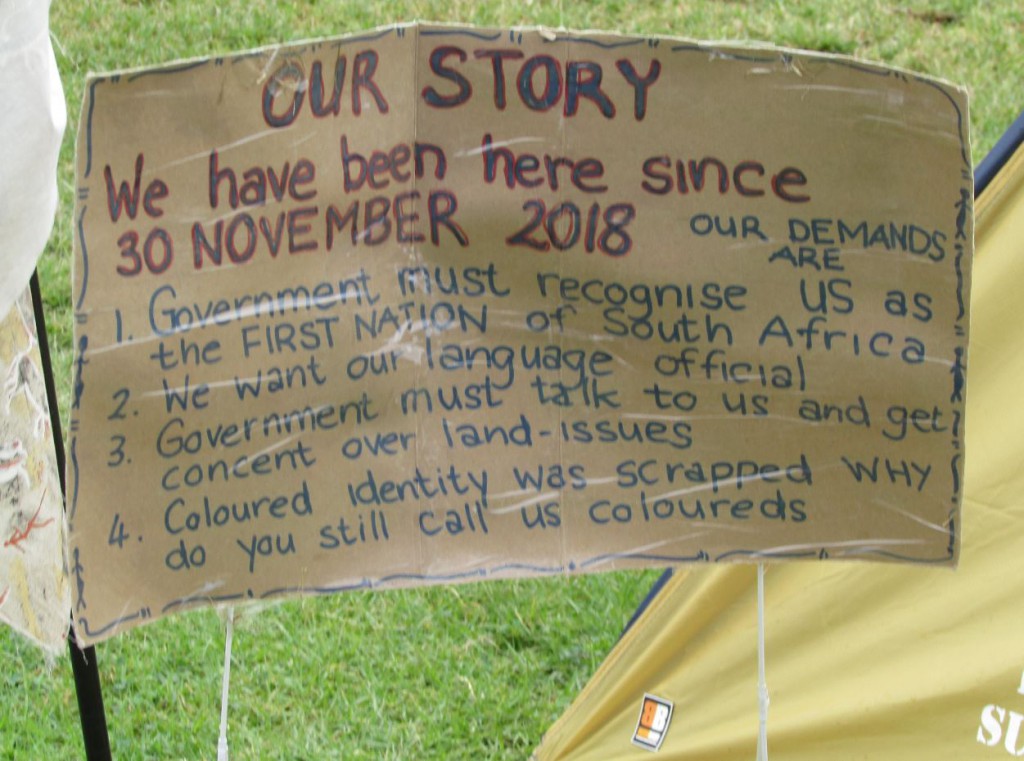 OUR STORY
We have been here since
30 NOVEMBER 2018
OUR DEMANDS
ARE
1. Government must recognise us as
the FIRST NATION of South Africa
2. We want our language official
3. Government must talk to us and get
concent over land-issues
4. Coloured Identity was scrapped WHY
do you still call us coloureds
SU